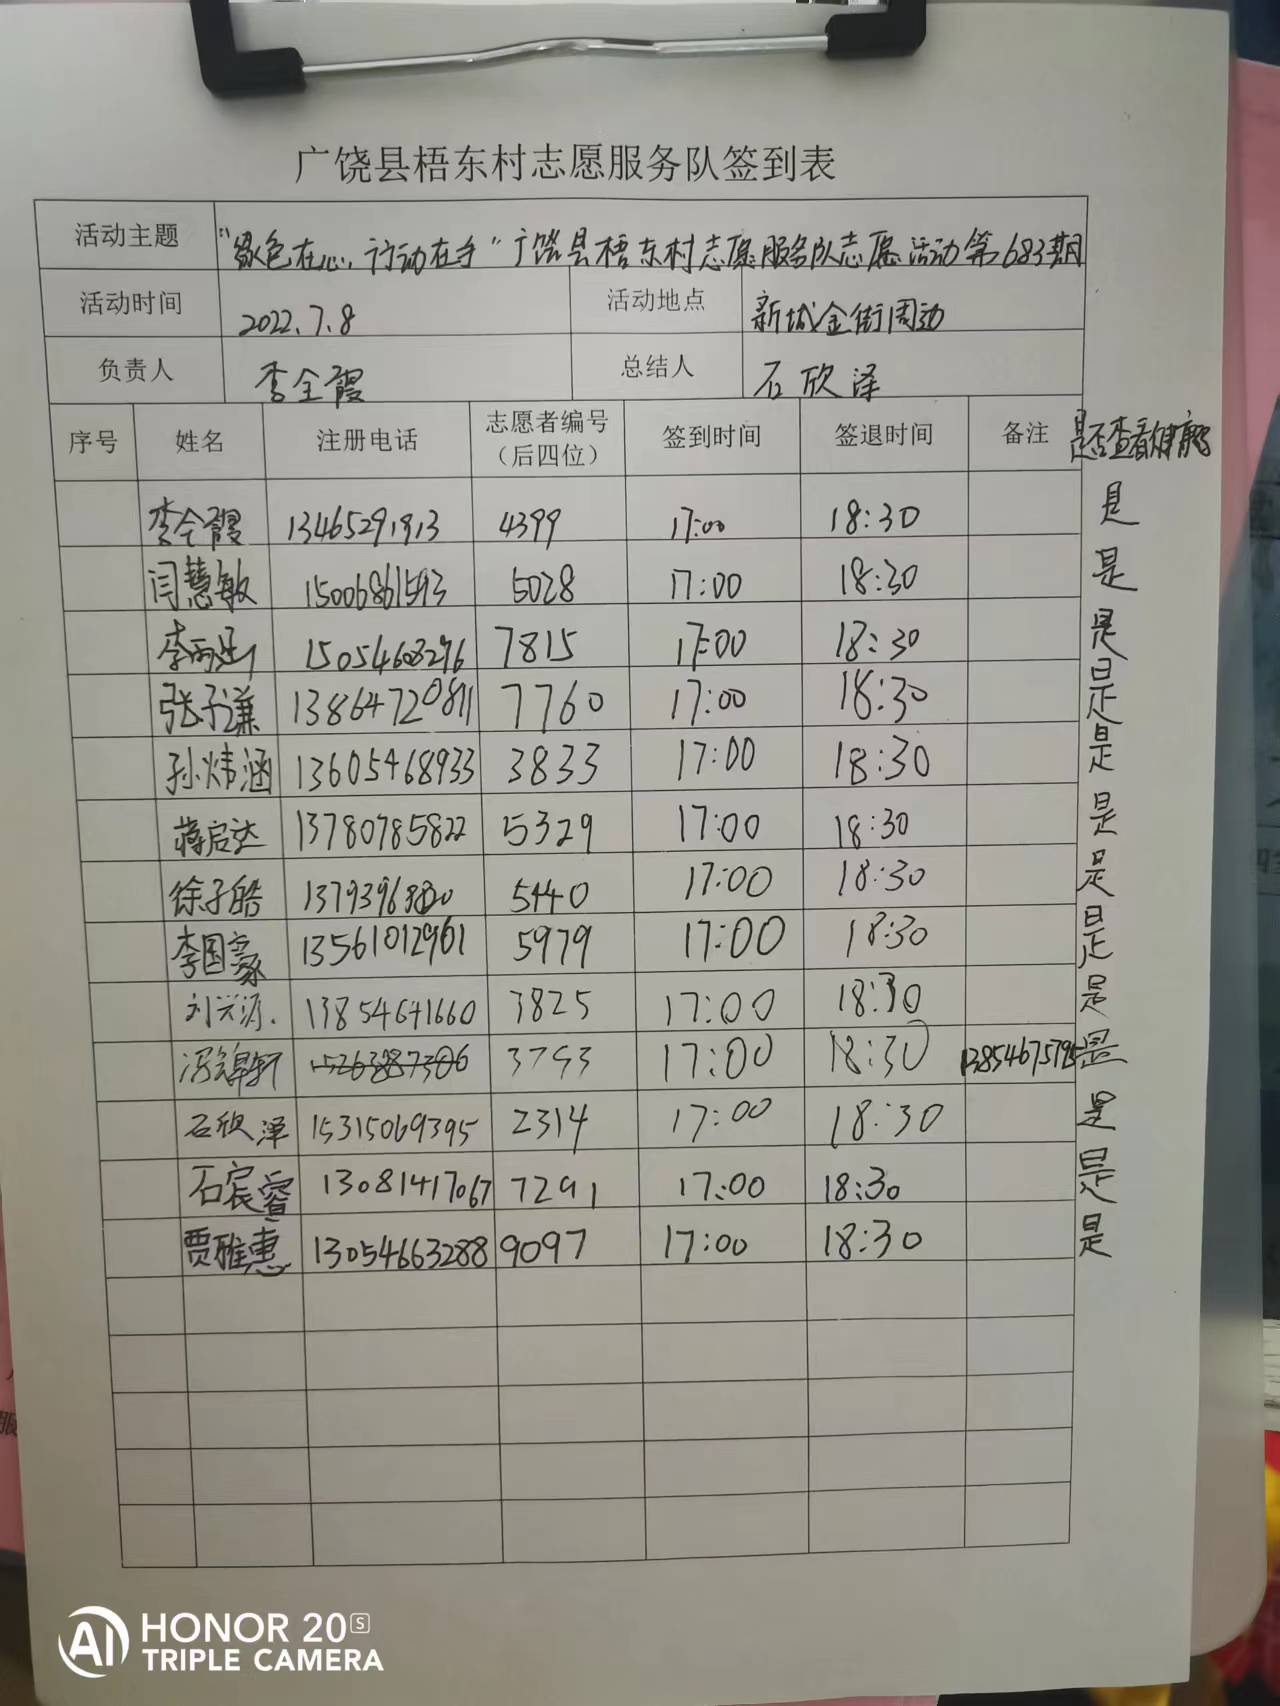 广饶县梧东村志愿服务队签到表
活动主题 “绿色在心，行动在手”广饶县梧东村志愿服务队志愿活动第683期
活动时间 2022.7.8 活动地点 新城金街周边
负责人 李全霞 总结人 石欣泽
序号 姓名 注册电话 志愿者编号（后四位） 签到时间 签退时间 备注 是否查看健康
李全霞 13465291913 4399 17:00 18:30 是
闫慧敏 15006861593 5028 17:00 18:30 是
李雨 15054608296 7815 17:00 18:30 是
张子谦 13864720811 7760 17:00 18:30 是
孙炜涵 13605468933 3833 17:00 18:30 是
蒋启达 13780785822 5329 17:00 18:30 是
徐子皓 5440 17:00 18:30 是
李国豪 13561012961 5979 17:00 18:30 是
刘兴源. 13854641660 3825 17:00 18:30 是
冯 15263887306 3793 17:00 18:30 13854675795 是
石欣泽 15315069395 2314 17:00 18:30 是
石宸睿 13081417067 7291 17:00 18:30 是
贾雅惠 13054663288 9097 17:00 18:30 是
AI HONOR 20S
TRIPLE CAMERA